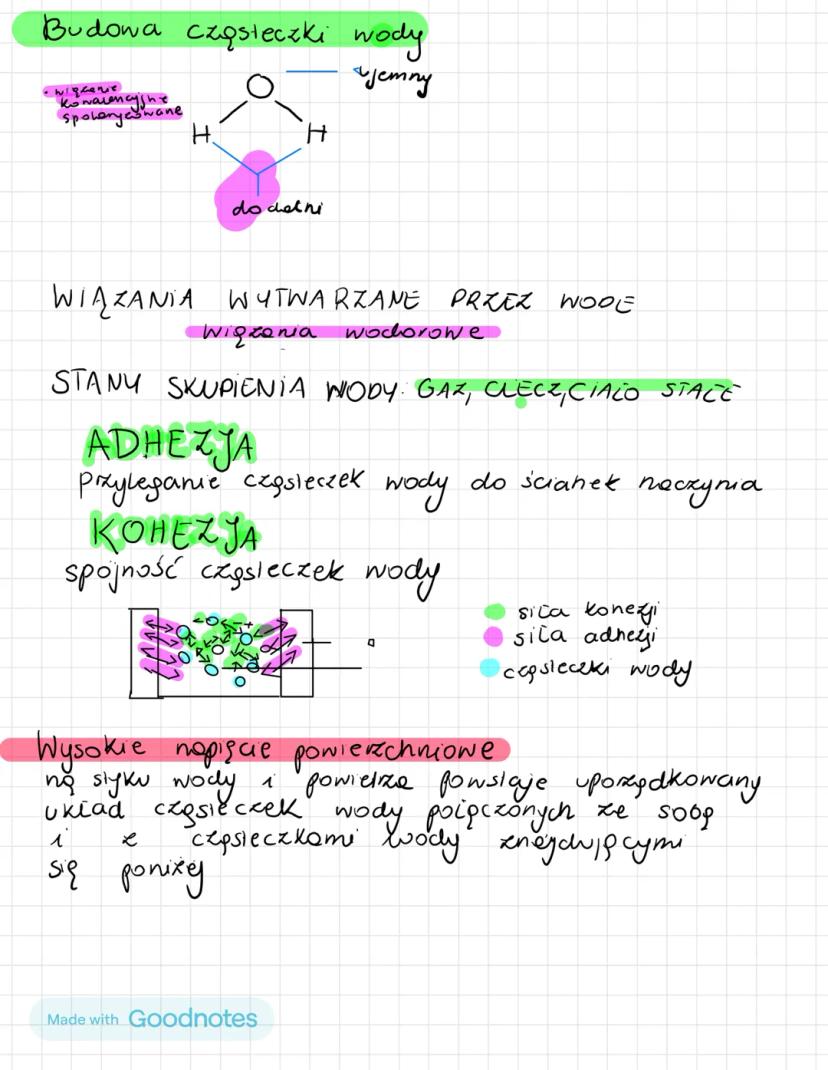 Budowa cząsteczki wody
ujemny
• wiązanie
kowalencyjne
spolaryzowane
O
H H
dodatni
WIĄZANIA WYTWARZANE PRZEZ WODĘ
wiązania wodorowe
STANY SKUPIENIA WODY: GAZ, CIECZ, CIAŁO STAŁE
ADHEZJA
Przyleganie cząsteczek wody do ścianek naczynia
KOHEZJA
spójność cząsteczek wody
siła kohezji
siła adhezji
cząsteczki wody
Wysokie napięcie powierzchniowe
na styku wody i powietrza powstaje uporządkowany
układ cząsteczek wody połączonych ze sobą
i z cząsteczkami wody znajdującymi
się poniżej
Made with Goodnotes